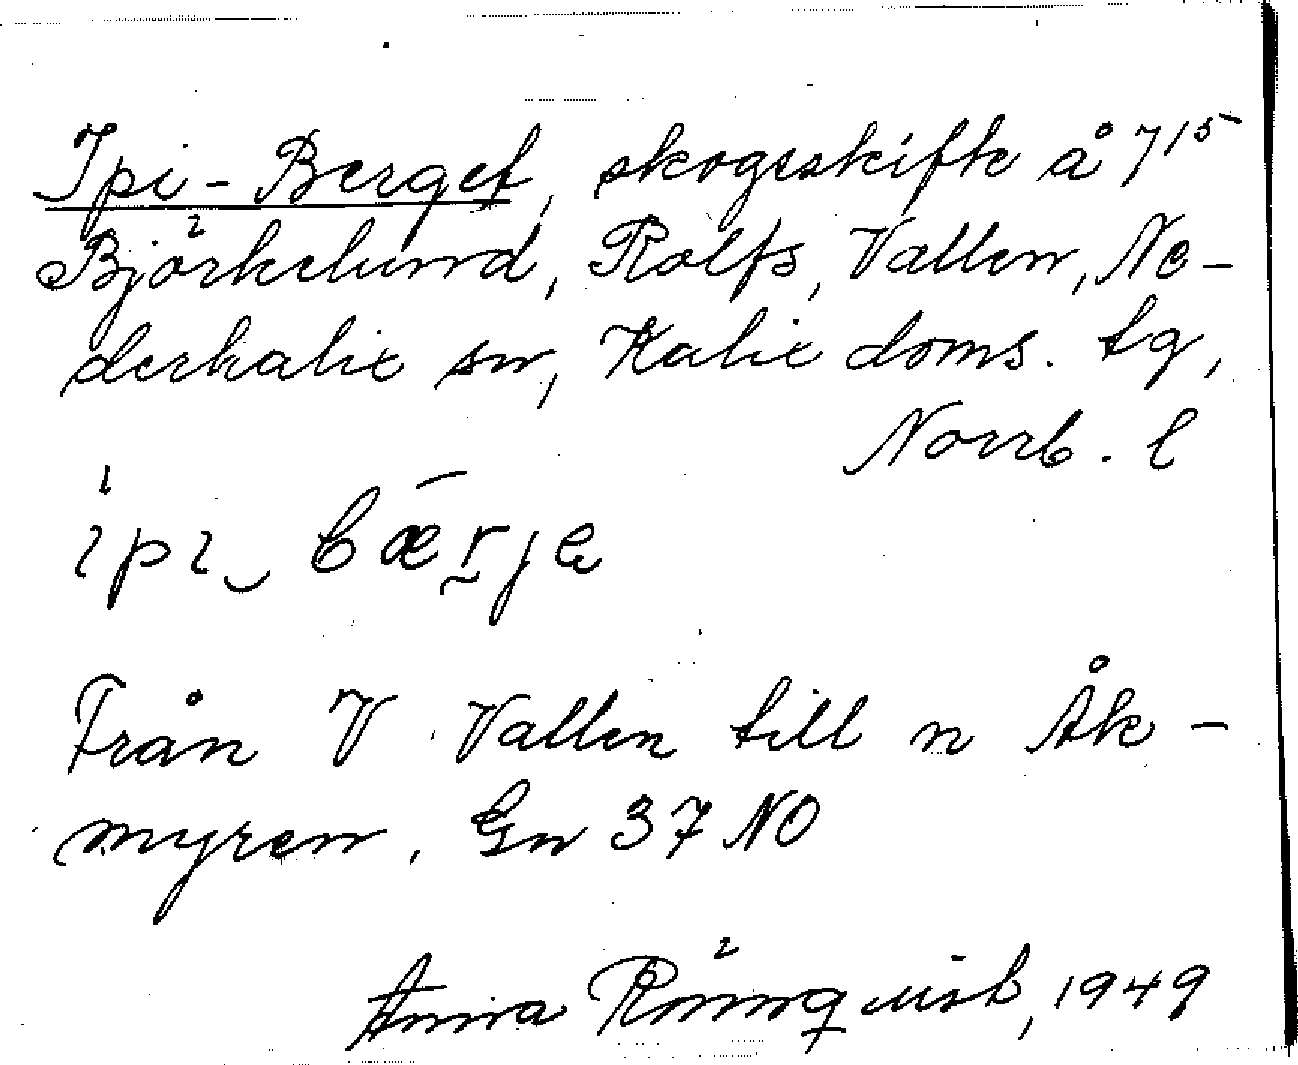 Ipi-Berget, skogsskifte å 7¹⁵
Björkelund, Rolfs, Vallen, Ne-
derkalix sn, Kalix doms. tg,
Norrb. l
ipi‿bærje
Från V Vallen till n Åk-
myren. Gn 37 NO
Anna Rönnqvist, 1949